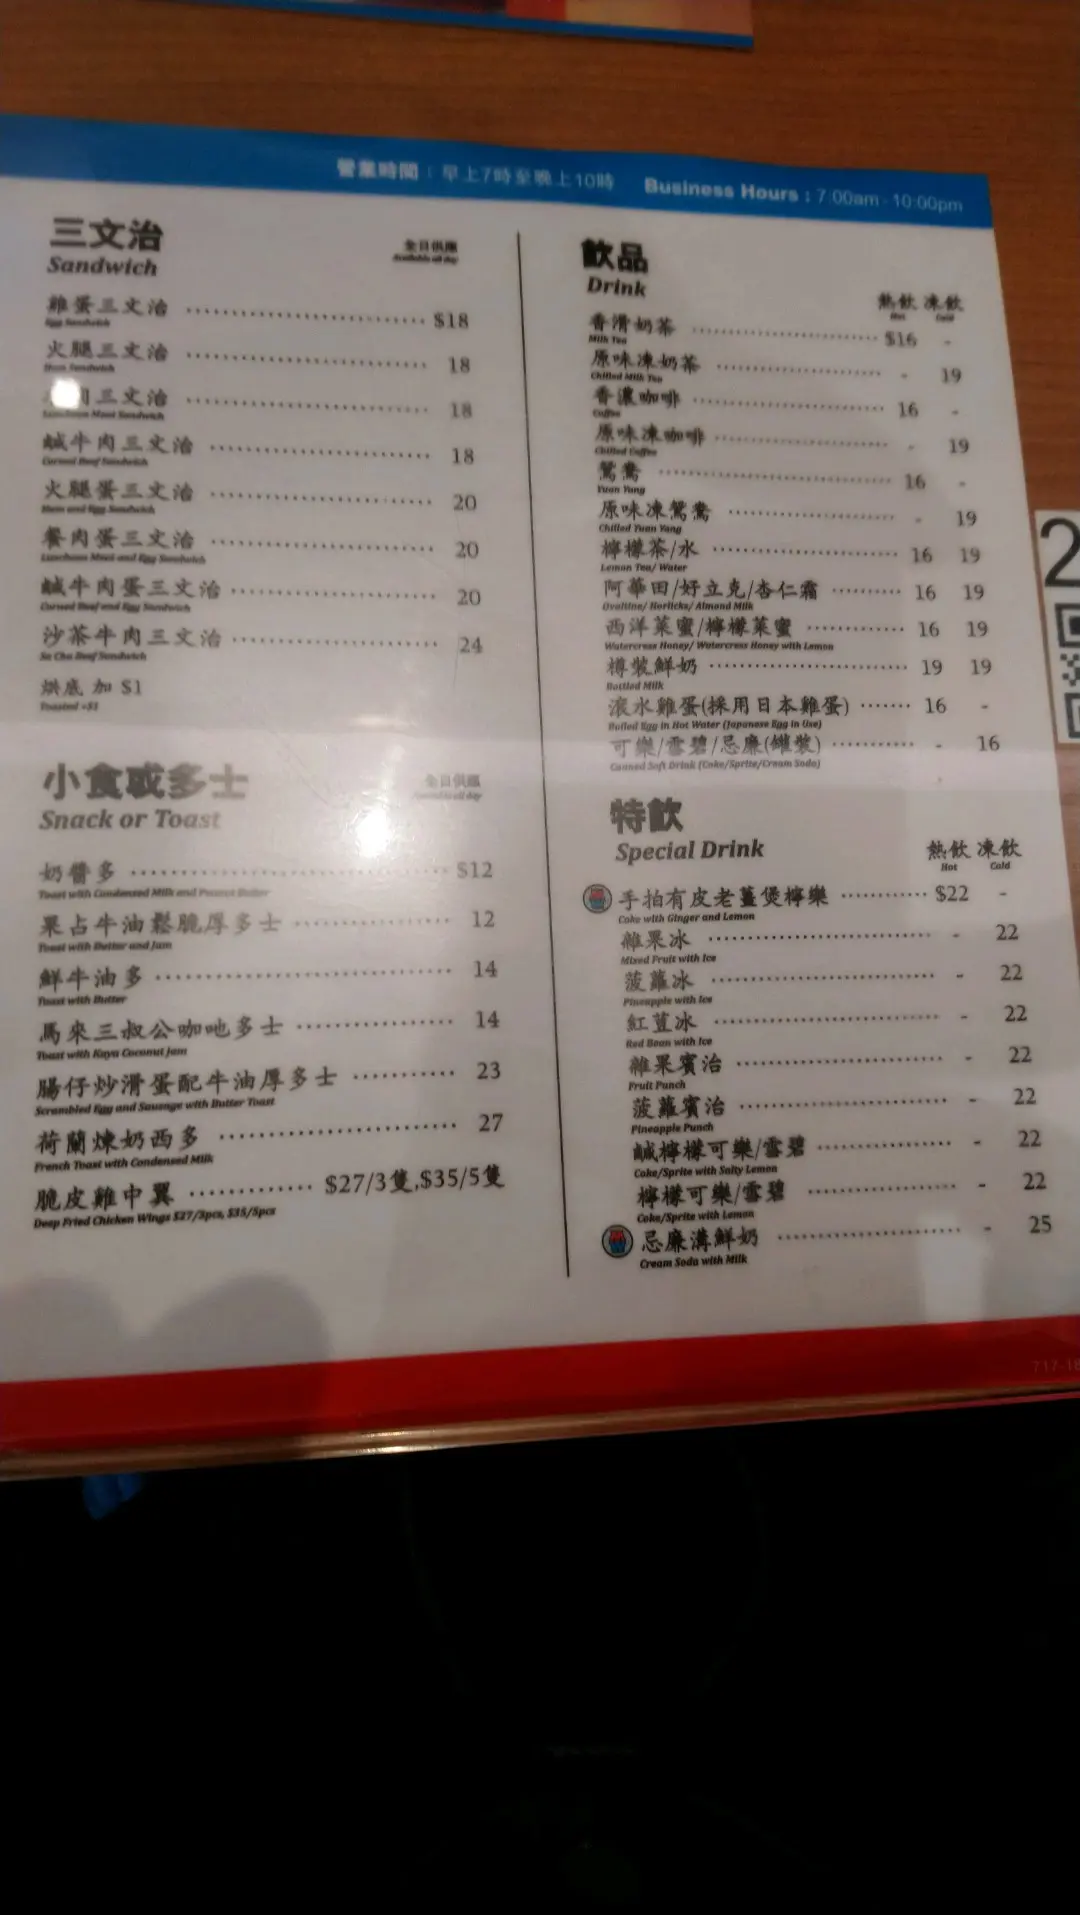 營業時間：早上7時至晚上10時 Business Hours : 7:00am - 10:00pm
三文治 全日供應
Sandwich Available all day
雞蛋三文治 $18
Egg Sandwich
火腿三文治 18
Ham Sandwich
肉三文治 18
Luncheon Meat Sandwich
鹹牛肉三文治 18
Corned Beef Sandwich
火腿蛋三文治 20
Ham and Egg Sandwich
餐肉蛋三文治 20
Luncheon Meat and Egg Sandwich
鹹牛肉蛋三文治 20
Corned Beef and Egg Sandwich
沙茶牛肉三文治 24
Sa Cha Beef Sandwich
烘底 加 $1
Toasted +$1
小食或多士 全日供應
Snack or Toast Available all day
奶醬多 $12
Toast with Condensed Milk and Peanut Butter
果占牛油鬆脆厚多士 12
Toast with Butter and Jam
鮮牛油多 14
Toast with Butter
馬來三叔公咖吔多士 14
Toast with Kaya Coconut Jam
腸仔炒滑蛋配牛油厚多士 23
Scrambled Egg and Sausage with Butter Toast
荷蘭煉奶西多 27
French Toast with Condensed Milk
脆皮雞中翼 $27/3隻,$35/5隻
Deep Fried Chicken Wings $27/3pcs, $35/5pcs
飲品
Drink
熱飲 凍飲
Hot Cold
香滑奶茶 $16 -
Milk Tea
原味凍奶茶 - 19
Chilled Milk Tea
香濃咖啡 16 -
Coffee
原味凍咖啡 - 19
Chilled Coffee
鴛鴦 16 -
Yuan Yang
原味凍鴛鴦 - 19
Chilled Yuan Yang
檸檬茶/水 16 19
Lemon Tea/ Water
阿華田/好立克/杏仁霜 16 19
Ovaltine/ Horlicks/ Almond Milk
西洋菜蜜/檸檬菜蜜 16 19
Watercress Honey/ Watercress Honey with Lemon
樽裝鮮奶 19 19
Bottled Milk
滾水雞蛋(採用日本雞蛋) 16 -
Boiled Egg in Hot Water (Japanese Egg in Use)
可樂/雪碧/忌廉(罐裝) - 16
Canned Soft Drink (Coke/Sprite/Cream Soda)
特飲
Special Drink
熱飲 凍飲
Hot Cold
手拍有皮老薑煲檸樂 $22 -
Coke with Ginger and Lemon
雜果冰 - 22
Mixed Fruit with Ice
菠蘿冰 - 22
Pineapple with Ice
紅荳冰 - 22
Red Bean with Ice
雜果賓治 - 22
Fruit Punch
菠蘿賓治 - 22
Pineapple Punch
鹹檸檬可樂/雪碧 - 22
Coke/Sprite with Salty Lemon
檸檬可樂/雪碧 - 22
Coke/Sprite with Lemon
忌廉溝鮮奶 - 25
Cream Soda with Milk
2